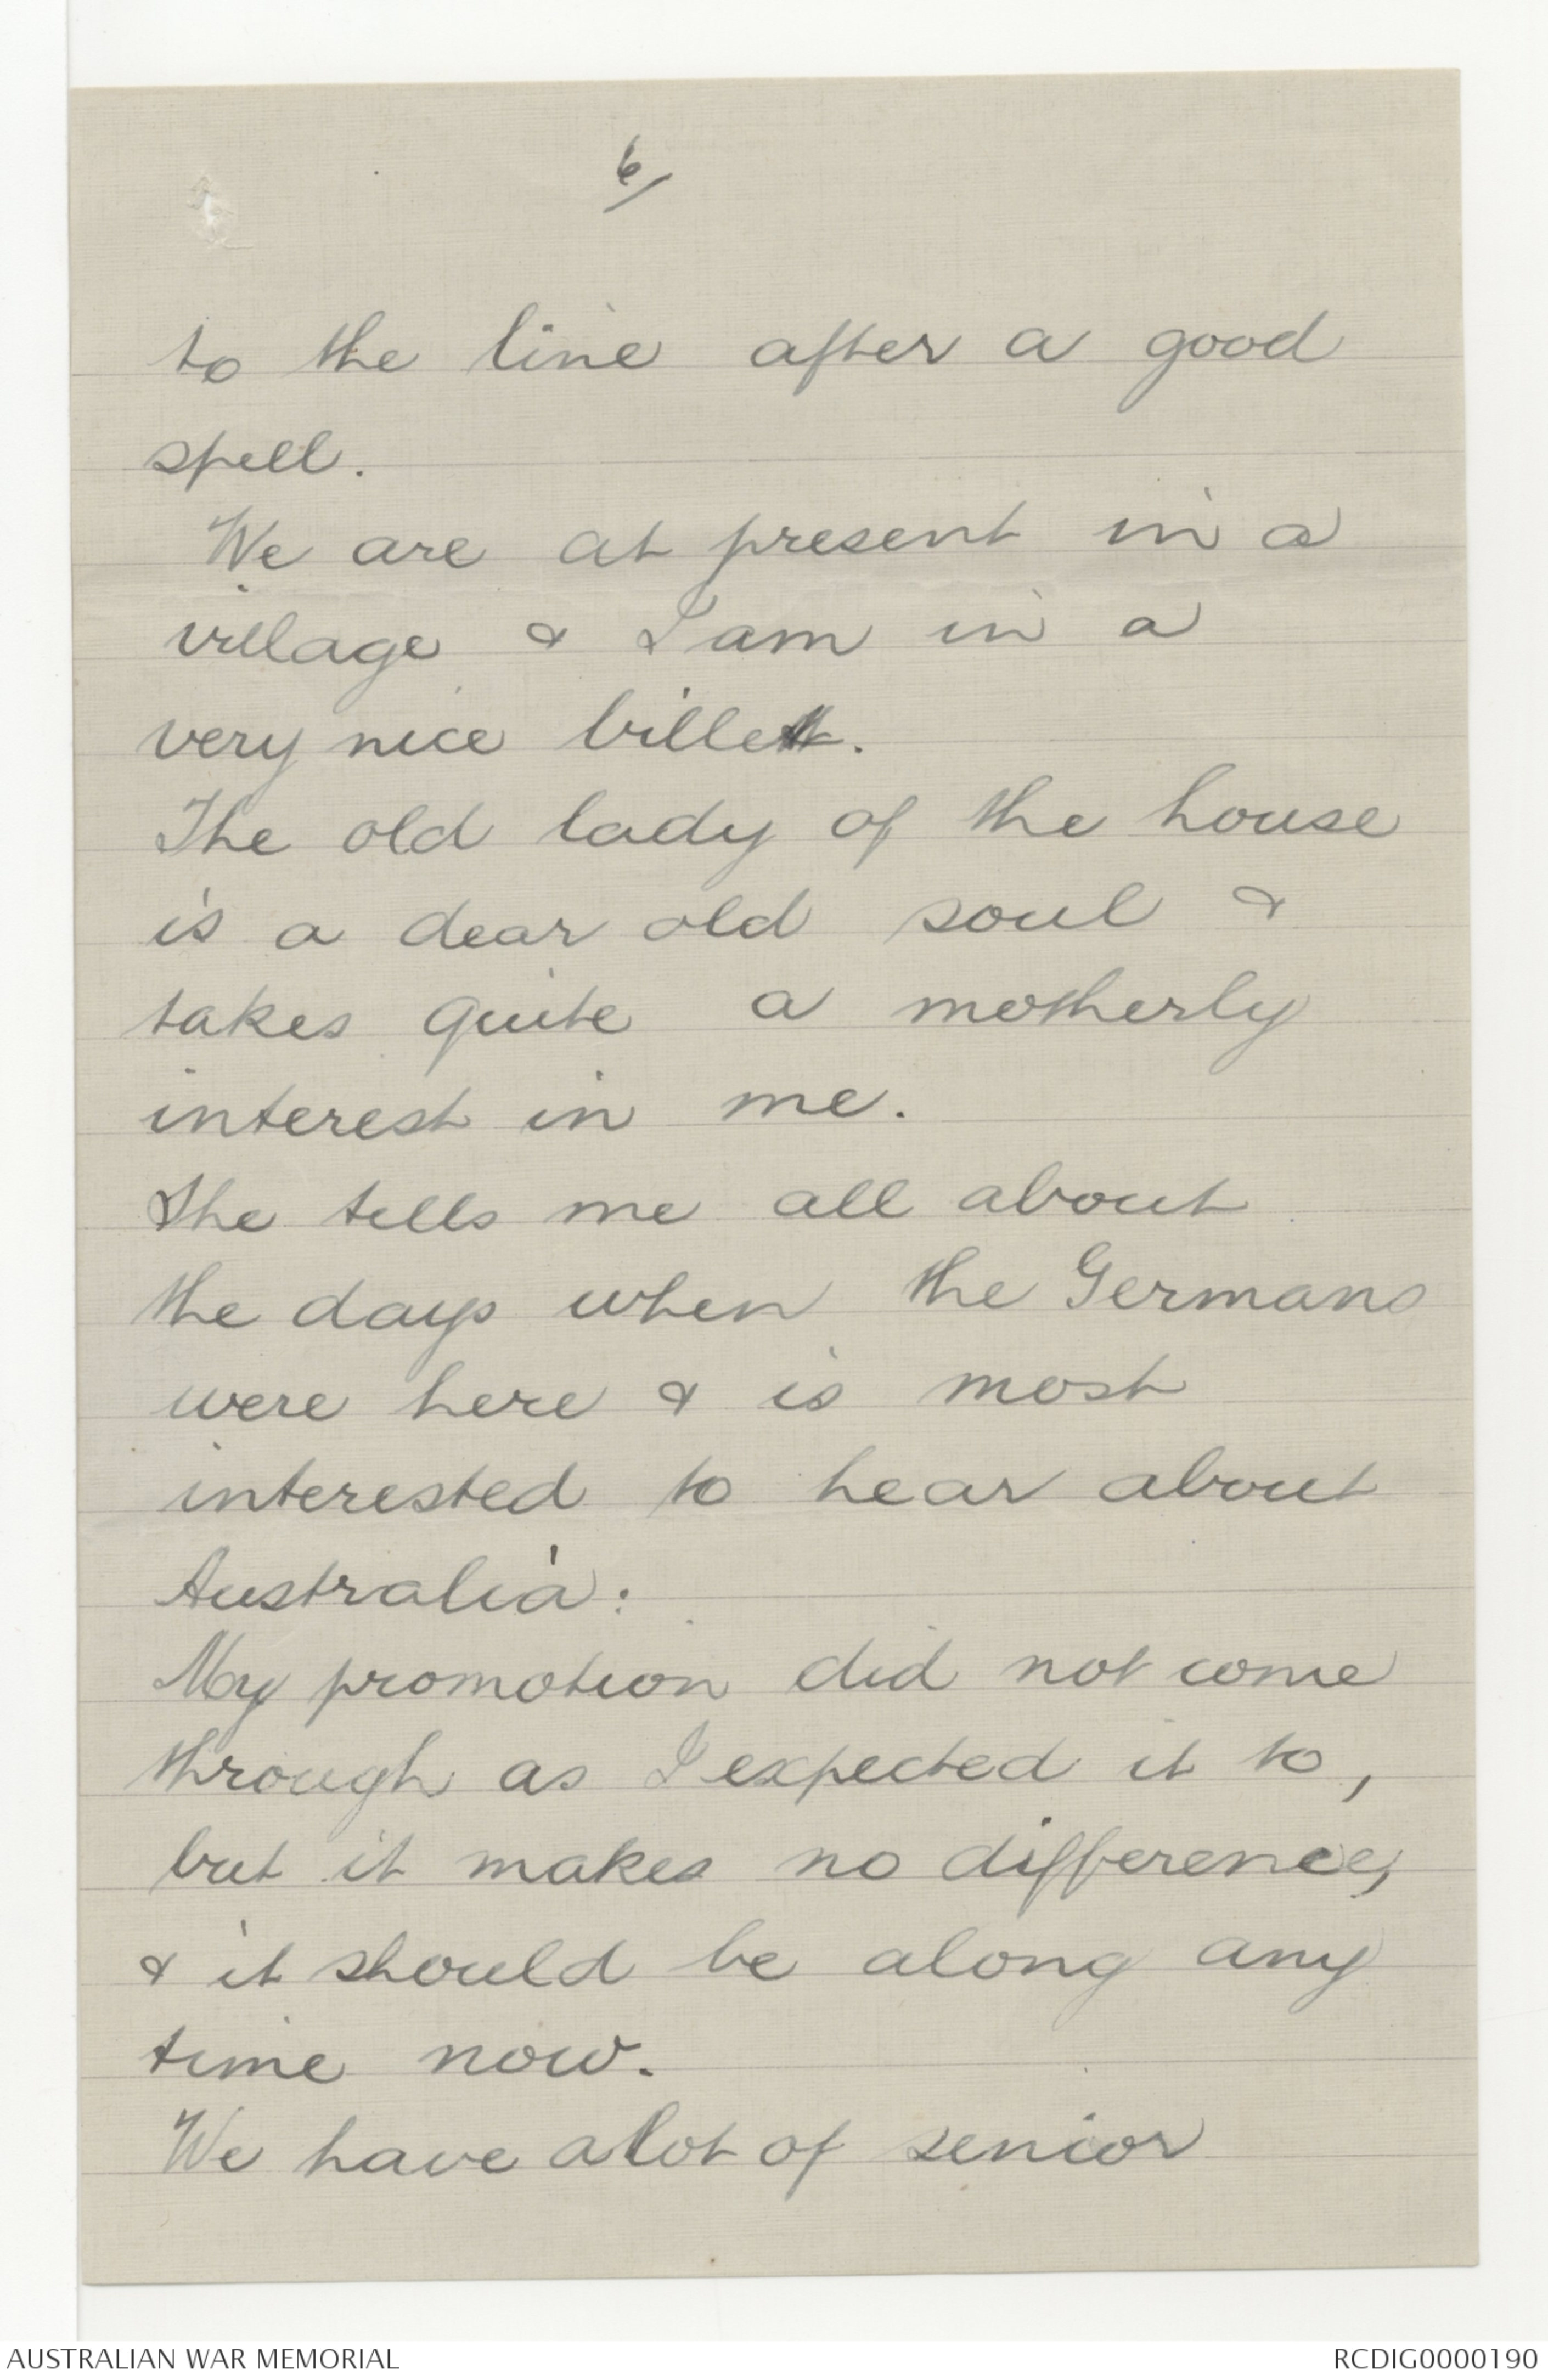 6/
to the line after a good
spell.
We are at present in a
village & I am in a
very nice billet.
The old lady of the house
is a dear old soul &
takes quite a motherly
interest in me.
She tells me all about
the days when the Germans
were here & is most
interested to hear about
Australia:
My promotion did not come
through as I expected it to,
but it makes no difference,
& it should be along any
time now.
We have a lot of senior
AUSTRALIAN WAR MEMORIAL
RCDIG0000190